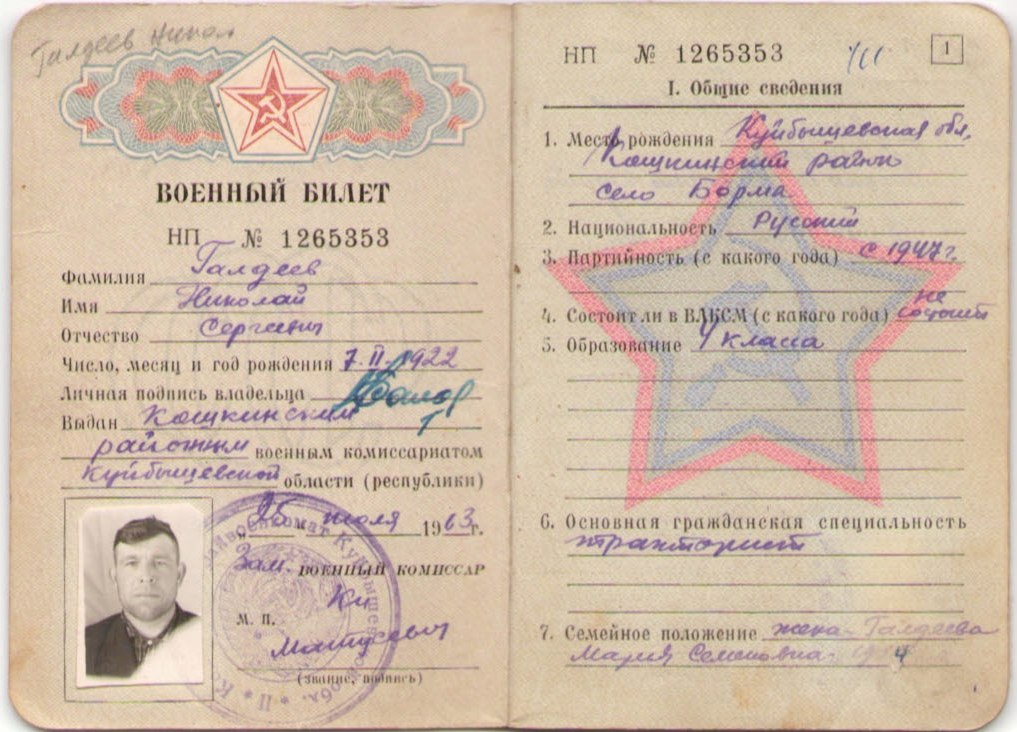 Галдеев Никол
ВОЕННЫЙ БИЛЕТ
НП № 1265353
Фамилия Галдеев
Имя Николай
Отчество Сергеевич
Число, месяц и год рождения 7.II-1922
Личная подпись владельца
Выдан Кошкинским
районным военным комиссариатом
Куйбышевской области (республики)
"25" июля 1963 г.
Зам. ВОЕННЫЙ КОМИССАР
М. П.
Матусевич
(звание, подпись)
НП № 1265353
1
I. Общие сведения
1. Место рождения Куйбышевская обл,
Кошкинский район
село Борма
2. Национальность Русский
3. Партийность (с какого года) с 1947 г.
4. Состоит ли в ВЛКСМ (с какого года) не
состоит
5. Образование 4 класса
6. Основная гражданская специальность
тракторист
7. Семейное положение жена - Галдеева
Мария Семеновна -